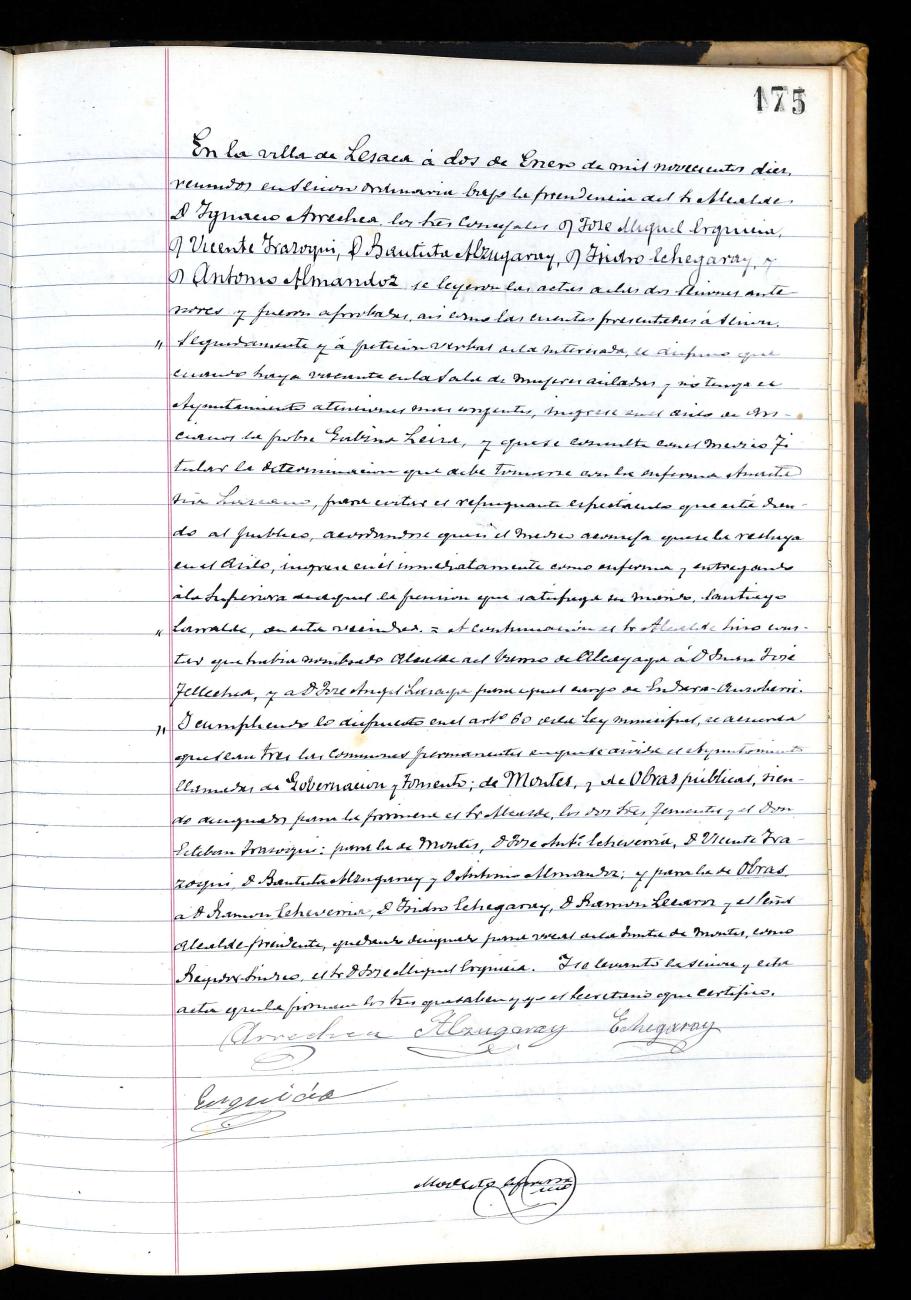 175
En la villa de Lesaca á dos de Enero de mil novecientos diez,
reunidos en sesion ordinaria bajo la presidencia del Sr Alcalde
D Ygnacio Arrechea, los sres Concejales D Jose Miguel Erquicia,
D Vicente Irazoqui, D Bautista Alzugaray, D Isidro Echegaray, y
D Antonio Almandoz se leyeron las actas de las dos sesiones ante
riores y fueron aprobadas, asi como las cuentas presentadas á sesion.
" Seguidamente y á peticion verbal de la interesada, se dispuso que
cuando haya vacante en la Sala de mujeres aisladas y no tenga el
Ayuntamiento atenciones mas urgentes, ingrese en el asilo de An-
cianos la pobre Gabina Leiza, y que se consulte con el medico Ti
tular la determinacion que debe tomarse con la enferma Anasta
sia, para evitar el repugnante espectáculo que está dan-
do al publico, acordandose que si el medico aconseja que se la recluya
en el asilo, ingrese en él inmediatamente como enferma y entregando
á la Superiora de aquel la pension que satisfaga su marido, Santiago
" Larralde, de esta vecindad. = A continuacion el Sr Alcalde hizo cons-
tar que habia nombrado Alcalde del barrio de Alcayaga á D Juan José
Tellechea, y a D Jose Angel para igual cargo de Endara-
" Y cumpliendo lo dispuesto en el artº 60 de la ley municipal, se acuerda
que sean tres las comisiones permanentes en que se divide el Ayuntamiento
llamadas de Gobernacion y Fomento; de Montes, y de Obras públicas, sien-
do designados para la primera el Sr Alcalde, los dos sres Tenientes y el Don
Esteban Irazoqui: para la de Montes, D Jose Antº Echeverria, D Vicente Ira-
zoqui, D Bautista Alzugaray y D Antonio Almandoz; y para la de Obras
á D Ramon Echeverria, D Isidro Echegaray, D Ramon y el Señor
Alcalde-presidente, quedando designado para vocal de la Junta de montes, como
Regidor-Síndico, el Sr D Jose Miguel Erquicia. Y se levantó la sesion y esta
acta que la firman los sres que saben y yo el Secretario que certifico.
Arrechea Alzugaray Echegaray
Erquicia
Modesto